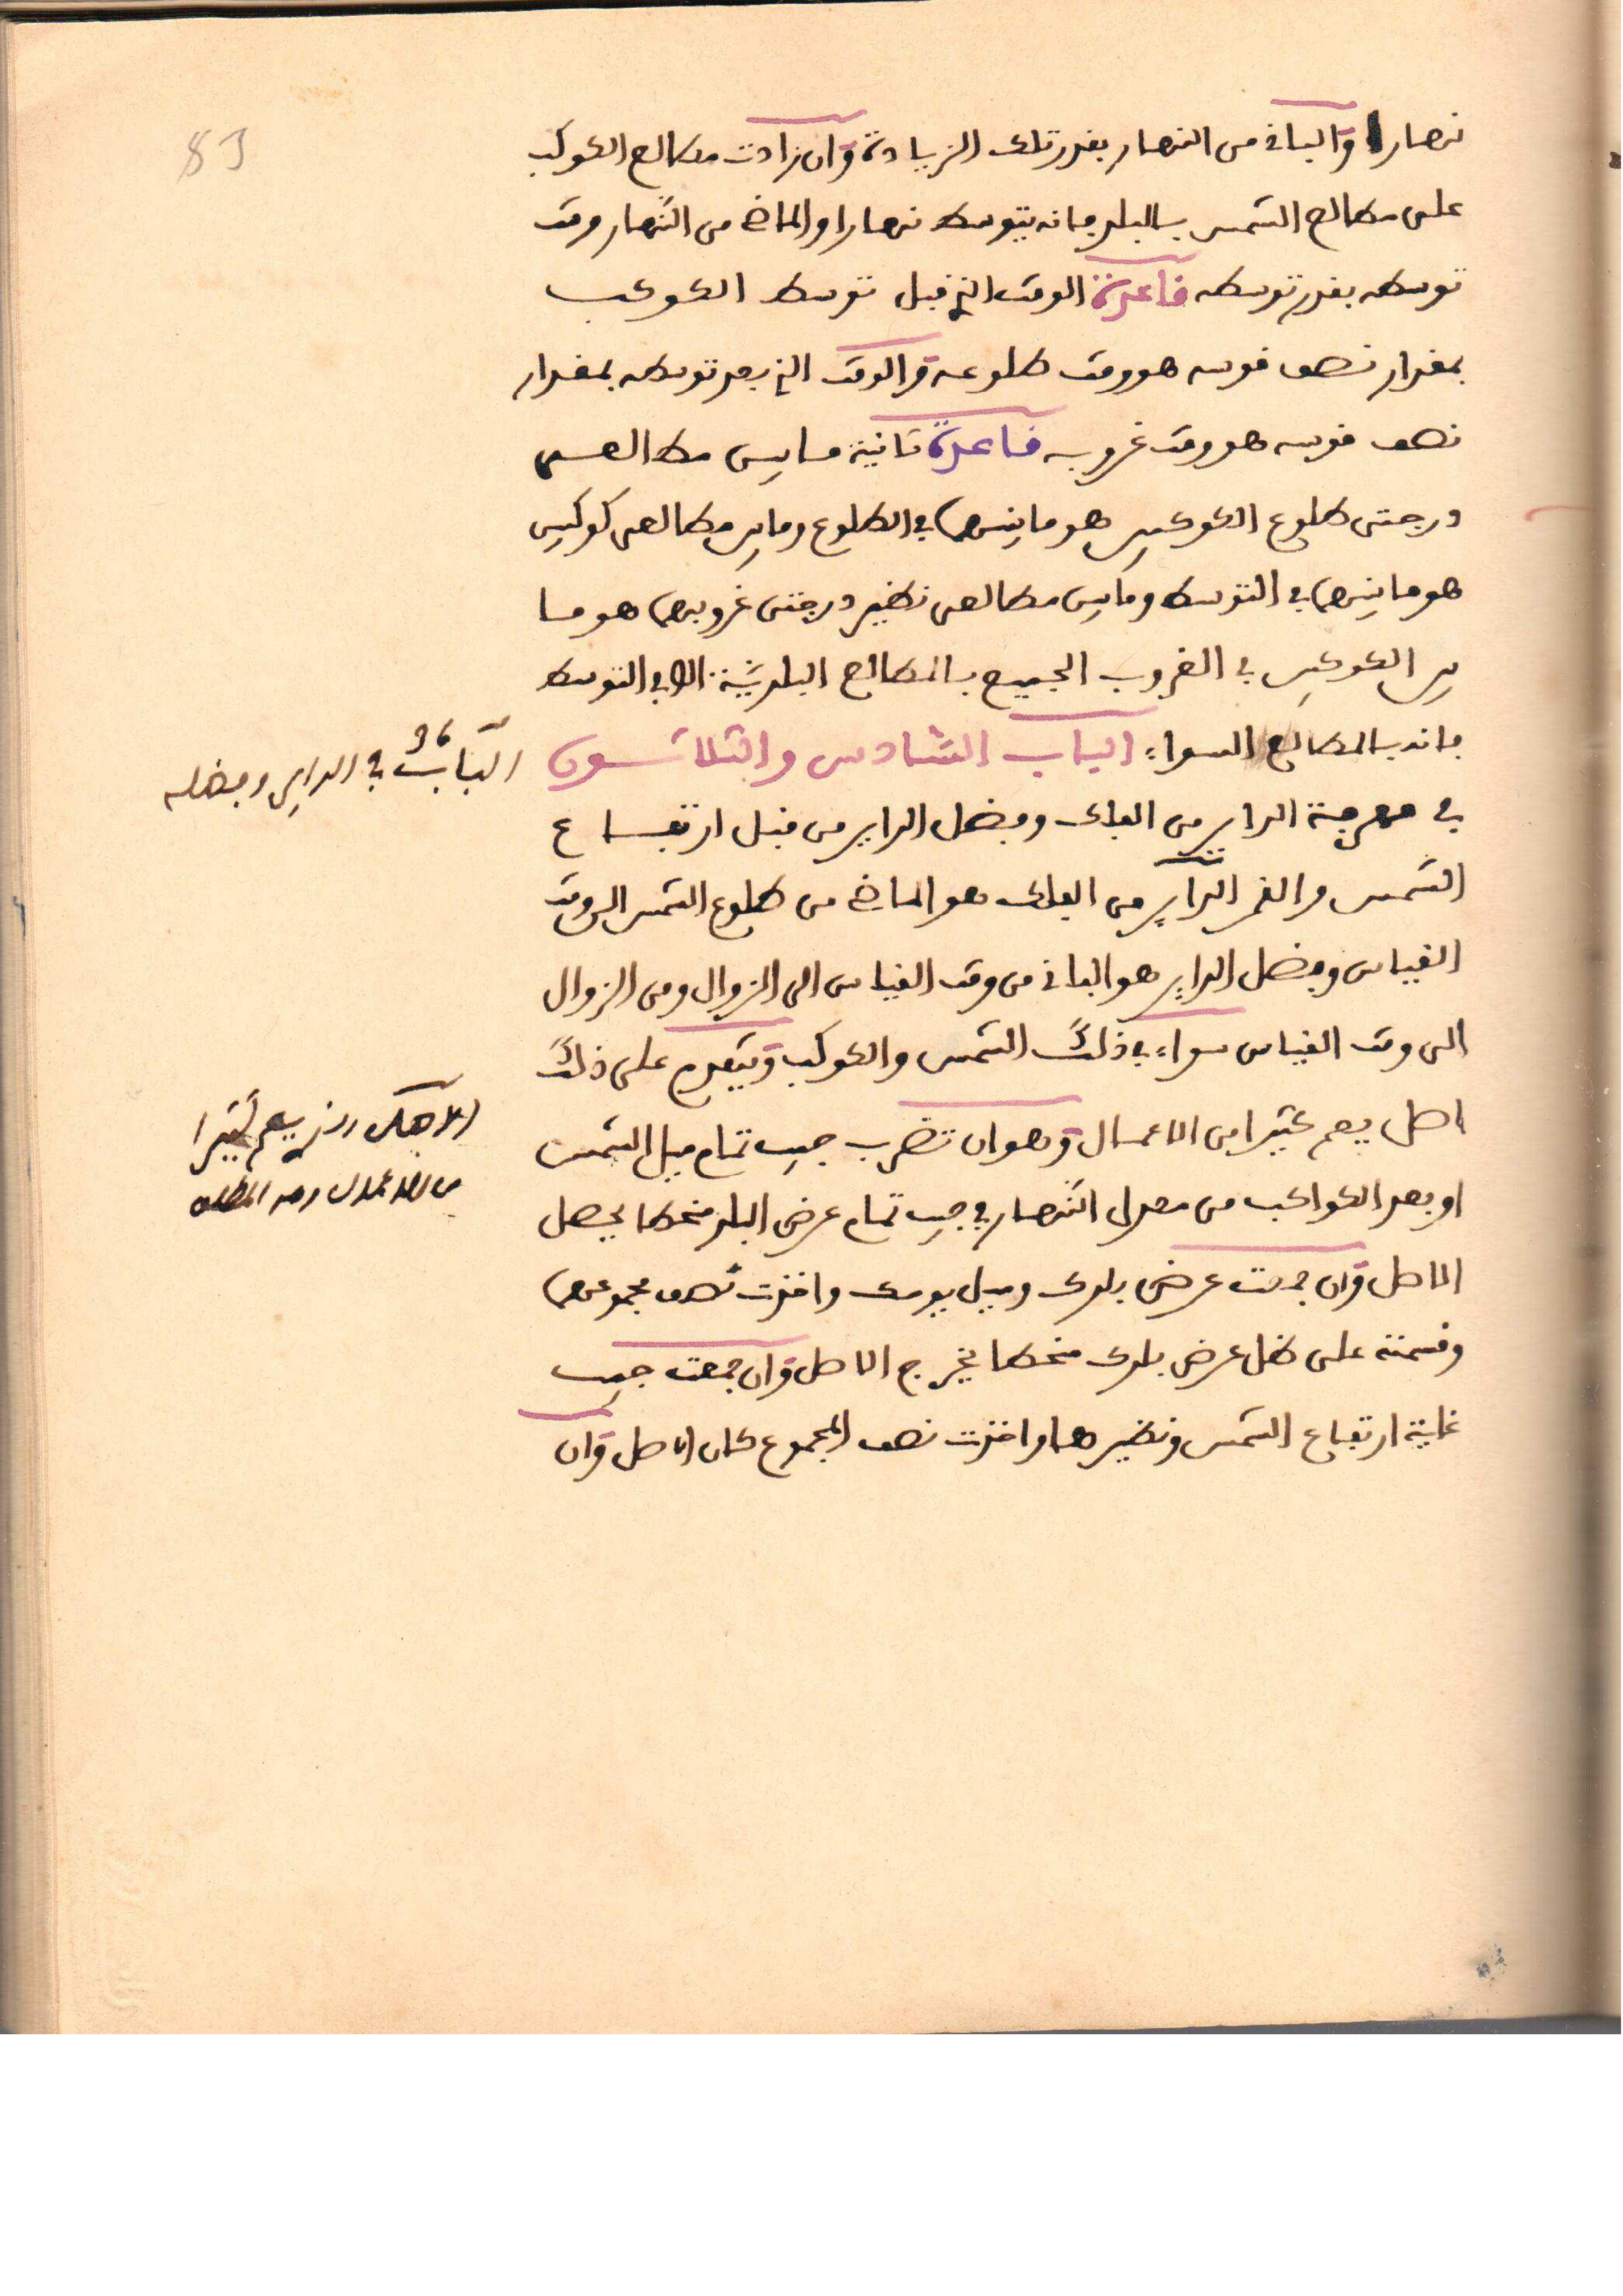 نهارا والباقي من النهار بقدر تلك الزيادة وان زادت مطالع الكوكب
على مطالع الشمس بالبلد فانه يتوسط نهارا والماضي من النهار وقت
توسطه بقدر توسطه قاعدة الوقت الذي قبل توسط الكوكب
بمقدار نصف قوسه هو وقت طلوعه والوقت الذي بعد توسطه بمقدار
نصف قوسه هو وقت غروبه قاعدة ثانية ما بين
درجتي طلوع الكوكبين هو ما بينهما في الطلوع وما بين مطالعي كوكبين
هو ما بينهما في التوسط وما بين مطالعي نظير درجتي غروبهما هو ما
بين الكوكبين في الغروب الجميع بالمطالع البلدية الا في التوسط
فانه بالمطالع السواء الباب السادس والثلاثون
في معرفة الداير من الفلك وفضل الداير من قبل ارتفاع
الشمس والقمر الداير من الفلك هو الماضي من طلوع الشمس الى وقت
القياس وفضل الداير هو الباقي من وقت القياس الى الزوال ومن الزوال
الى وقت القياس سواء في ذلك الشمس والكوكب ويتقدم على ذلك
اصل يعم كثيرا من الاعمال وهو ان تضرب جيب تمام ميل الشمس
او بعد الكواكب من معدل النهار في جيب تمام عرض البلد منحطا يحصل
الاصل وان جمعت عرض بلدك وميل يومك واخذت نصف مجموعهما
وقسمته على ظل عرض بلدك منحطا يخرج الاصل وان جمعت جيب
غاية ارتفاع الشمس ونظيرها واخذت نصف المجموع كان الاصل وان
الباب 36 في الداير وفضله
الاصل الذي يعم كثيرا
من الاعمال